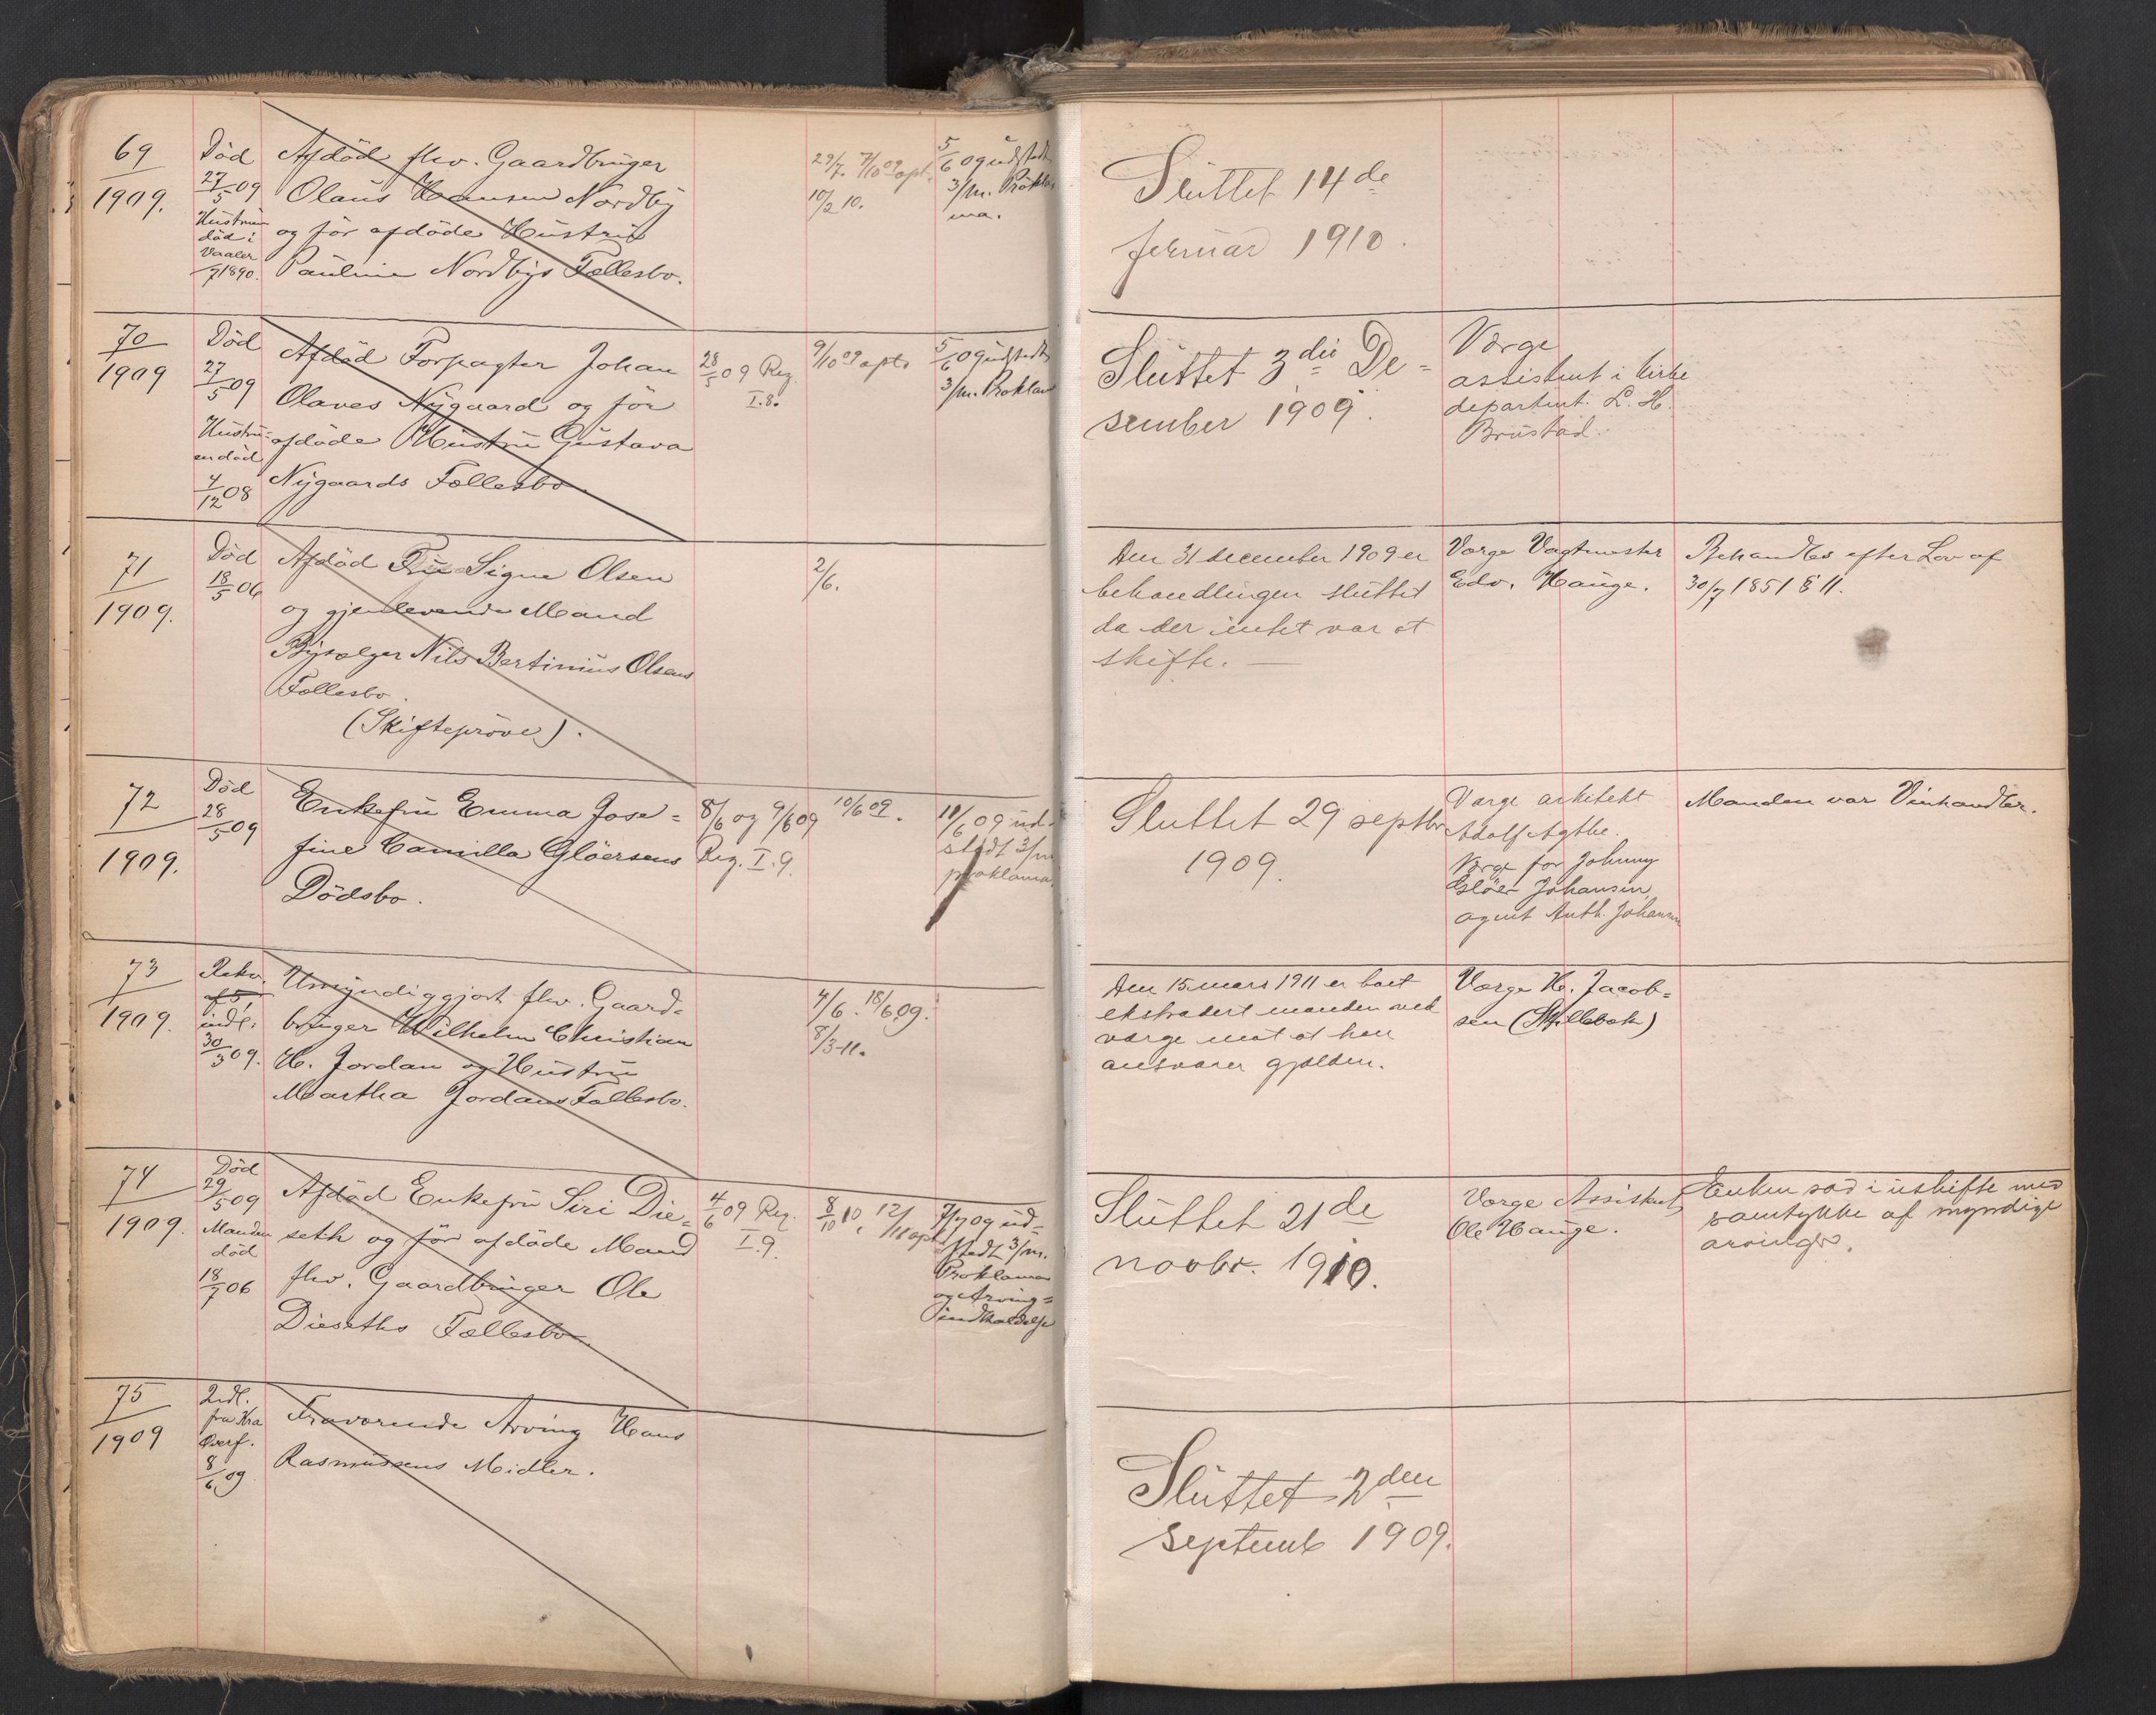 69
1909.
Död
27/5 09
Hustruen
död i
Vaaler
/7 1890.
Afdöd fhv. Gaardbruger
Olaus Hansen Nordby
og för afdöde Hustru
Pauline Nordbys Fællesbo.
29/7. 7/10 09 opt.
10/2 10.
5/6 09 udstedt
3/m. Prokla
ma.
Sluttet 14de
februar 1910.
70
1909
Död
27/5 09
Hustru-
en död
4/12 08
Afdöd Forpagter Johan
Olaves Nygaard og för
afdöde Hustru Gustava
Nygaards Fællesbo.
28/5 09 Reg.
I.8.
9/10 09 opt.
5/6 09 udstedt
3/m. Proklama
Sluttet 3die De-
sember 1909.
Værge
assistent i Kirke
departmt. L. H.
Brustad.
71
1909.
Död
18/5 06
Afdöd Fru Signe Olsen
og gjenlevende Mand
Bysælger Nils Bertinius Olsens
Fællesbo.
(Skifteprøve).
2/6.
Den 31 december 1909 er
behandlingen sluttet
da der intet var at
skifte. —
Værge Vagtmester
Edv. Hauge.
Behandles efter Lov af
30/7 1851 § 11.
72
1909.
Död
28/5 09
Enkefru Emma Jose-
fine Camilla Glöersens
Dödsbo.
8/6 og 9/6 09
Reg. I.9.
10/6 09.
11/6 09 ud-
stedt 3/m
proklama.
Sluttet 29 septbr
1909.
Værge arkitekt
Adolf Agthe.
Værge for Johnny
Glöer Johansen,
agent Anth. Johansen
Manden var Vinhandler.
73
1909.
Rekv.
af 5/
indl.
30/3 09.
Umyndiggjort fhv. Gaard-
bruger Wilhelm Christian
H. Jordan og Hustru
Martha Jordans Fællesbo.
4/6. 18/6 09.
8/3-11.
Den 15 mars 1911 er boet
ekstradert manden med
værge mot at han
ansvarer gjælden.
Værge H. Jacob-
sen (Skillebæk)
74
1909.
Död
29/5 09
Manden
död
18/7 06
Afdöd Enkefru Siri Die-
seth og för afdöde Mand
fhv. Gaardbruger Ole
Dieseths Fællesbo.
4/6 09 Reg.
I.9.
8/10 10. 12/11 opt.
7/7 09 ud-
stedt 3/m.
Proklama
og Arving-
indkaldelse
Sluttet 21de
novbr. 1910.
Værge Assistent
Ole Hauge.
Enken sad i uskifte med
samtykke af myndige
arvinger.
75
1909
Indl.
fra Kra
Overf.
8/6 09.
Fraværende Arving Hans
Rasmussens Midler.
Sluttet 2den
septemb 1909.